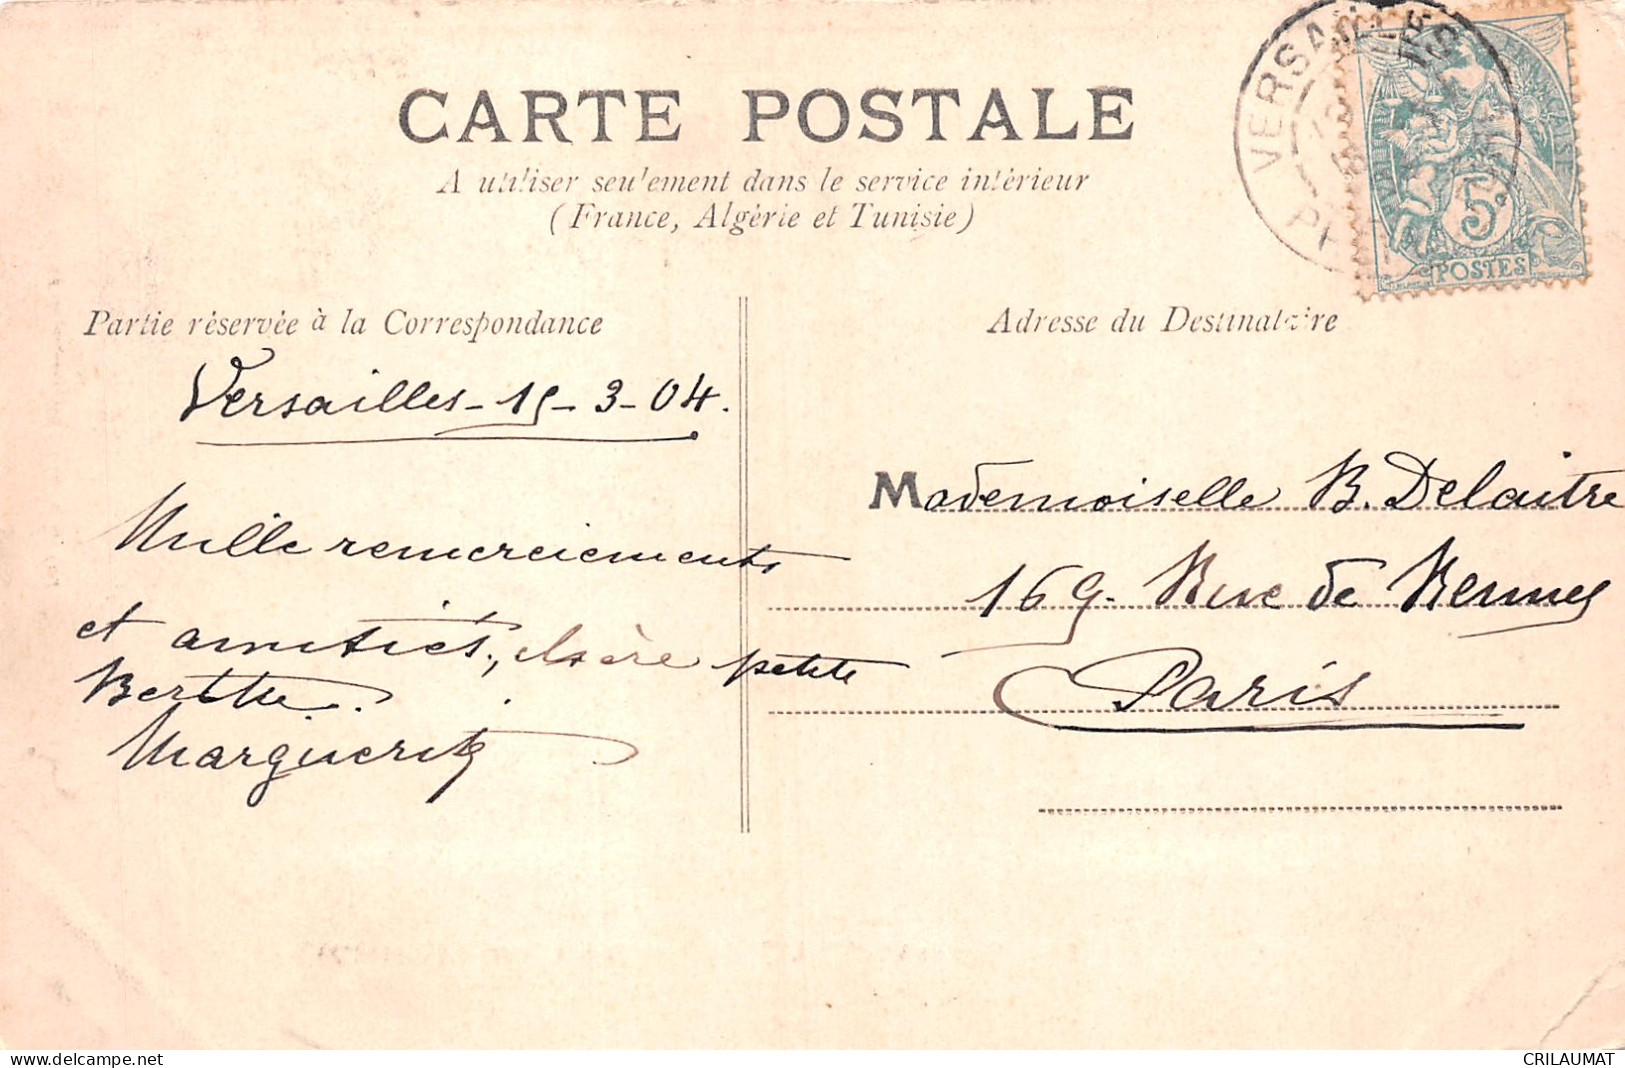 CARTE POSTALE
A utiliser seulement dans le service intérieur
(France, Algérie et Tunisie)
VERSAILLES
FRANÇAISE
5c
POSTES
Partie réservée à la Correspondance
Adresse du Destinataire
Versailles - 15 - 3 - 04.
Mille remerciements
et amitiés, chère petite
Berthe.
Marguerite
Mademoiselle B. Delaitre
169. Rue de Rennes
Paris
www.delcampe.net
CRILAUMAT